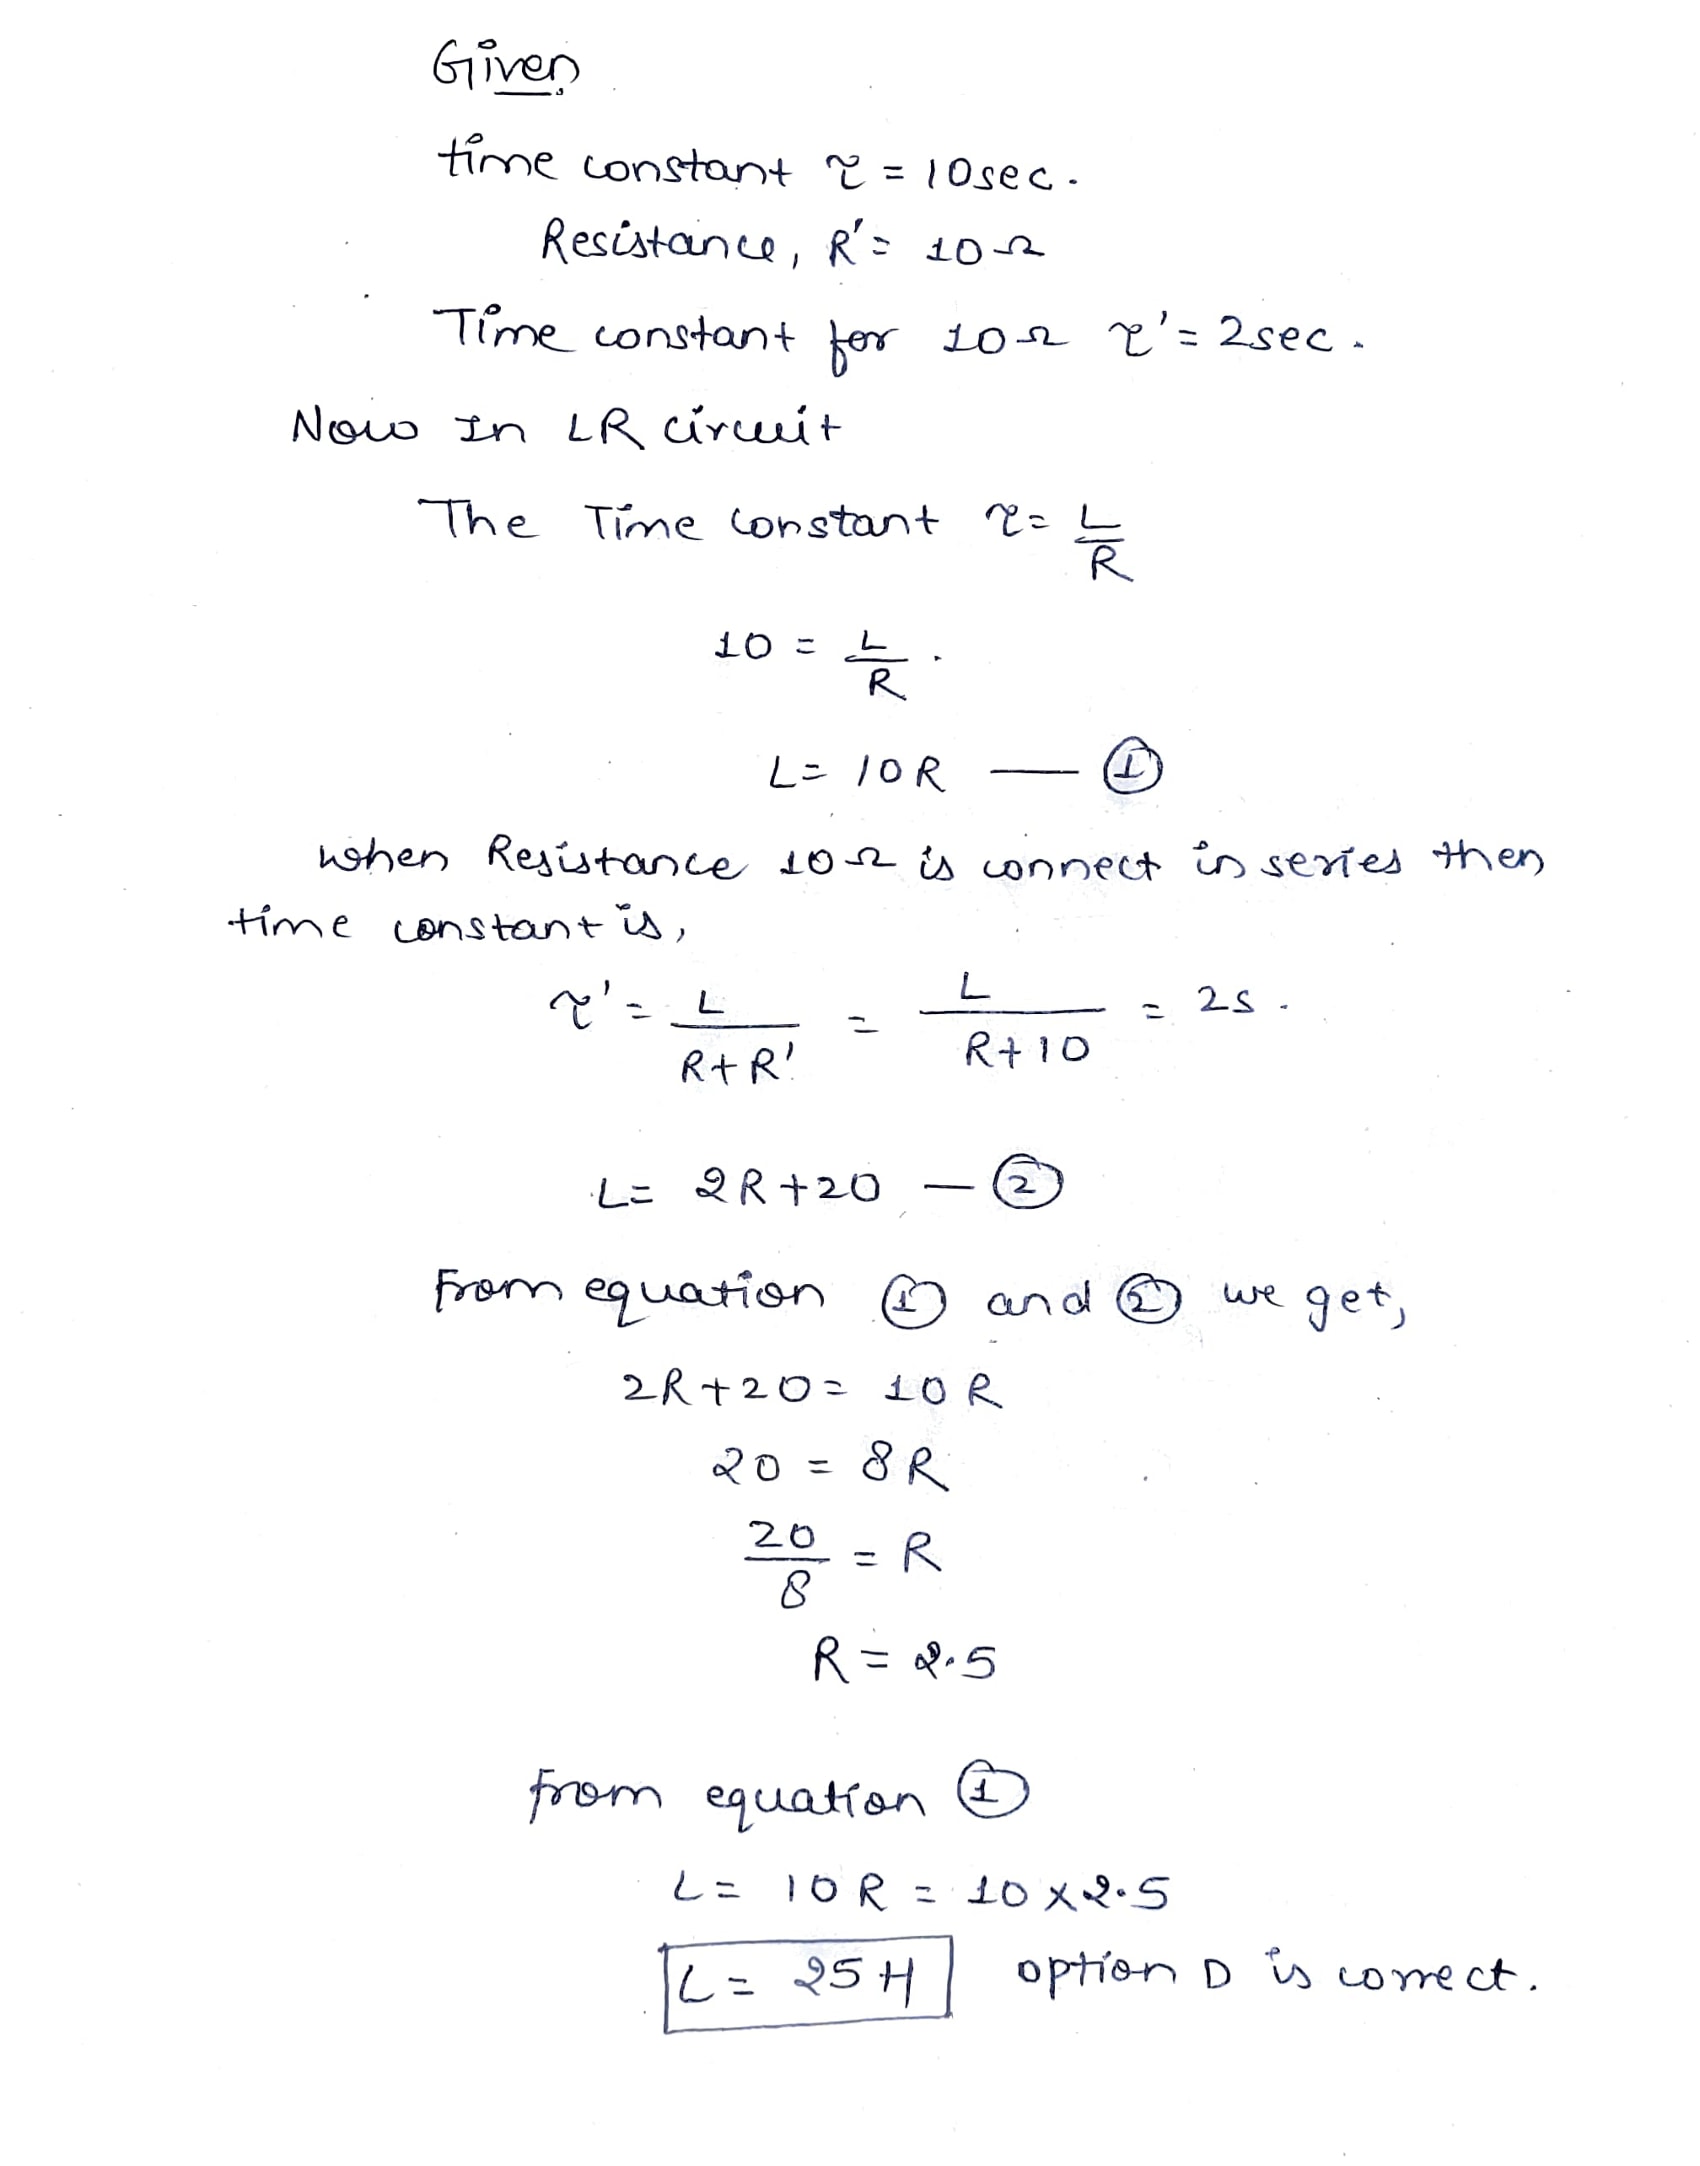 Given,
time constant τ = 10sec.
Resistance, R' = 10Ω
Time constant for 10Ω τ' = 2sec.
Now In LR circuit
The Time constant τ = L/R
10 = L/R.
L = 10R — ①
when Resistance 10Ω is connect in series then
time constant is,
τ' = L/(R+R') = L/(R+10) = 2s.
L = 2R+20 — ②
From equation ① and ② we get,
2R+20 = 10R
20 = 8R
20/8 = R
R = 2.5
from equation ①
L = 10R = 10×2.5
L = 25H option D is correct.